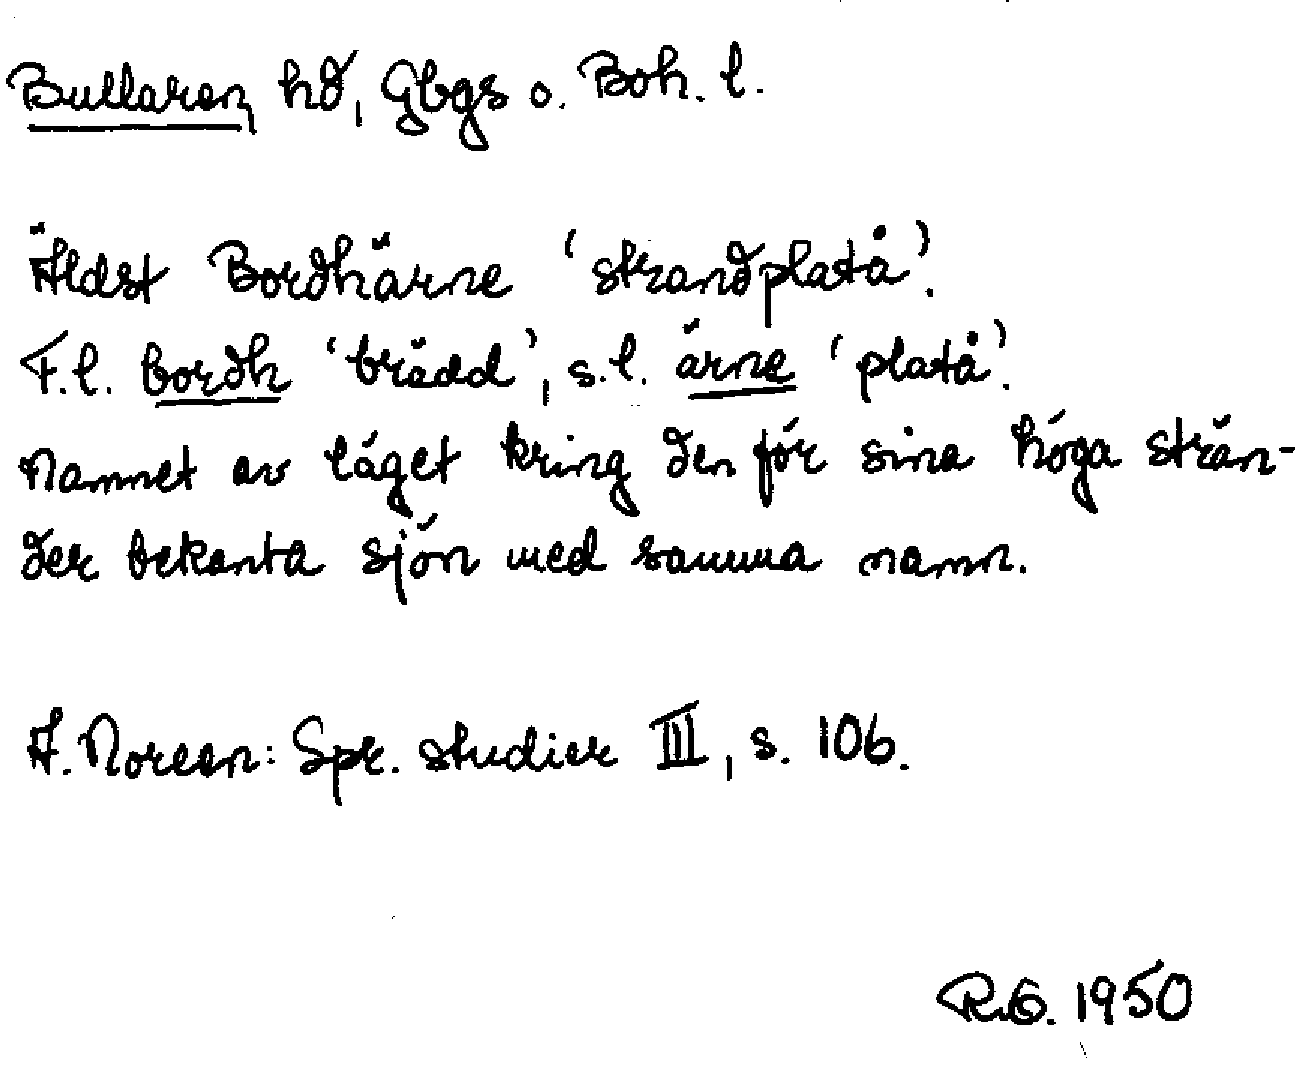 Bullaren, hd, Gbgs o. Boh. l.
Äldst Bordhärne 'strandplatå'.
F.l. bordh 'brädd', s.l. ärne 'platå'.
Namnet av läget kring den för sina höga strän-
der bekanta sjön med samma namn.
A. Noreen: Spr. studier III, s. 106.
R.G. 1950